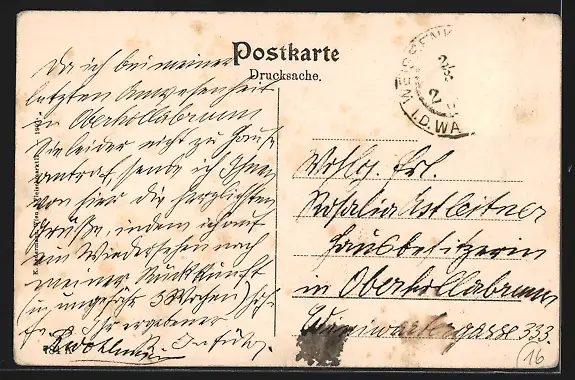 Postkarte
Drucksache.
Da ich bei meiner
letzten Anwesenheit
in Oberhollabrunn
Sie leider nicht zu Hause
antraf sende ich Ihnen
von hier die herzlichsten
Grüße, indem ich auf
ein Wiedersehen nach
meiner Rückkunft
(in ungefähr 3 Wochen)
Ihr ergebener
I.D.WA
Wohlg. Frl.
Rosalia Astleitner
Hausbesitzerin
in Oberhollabrunn
gasse 333.
(16